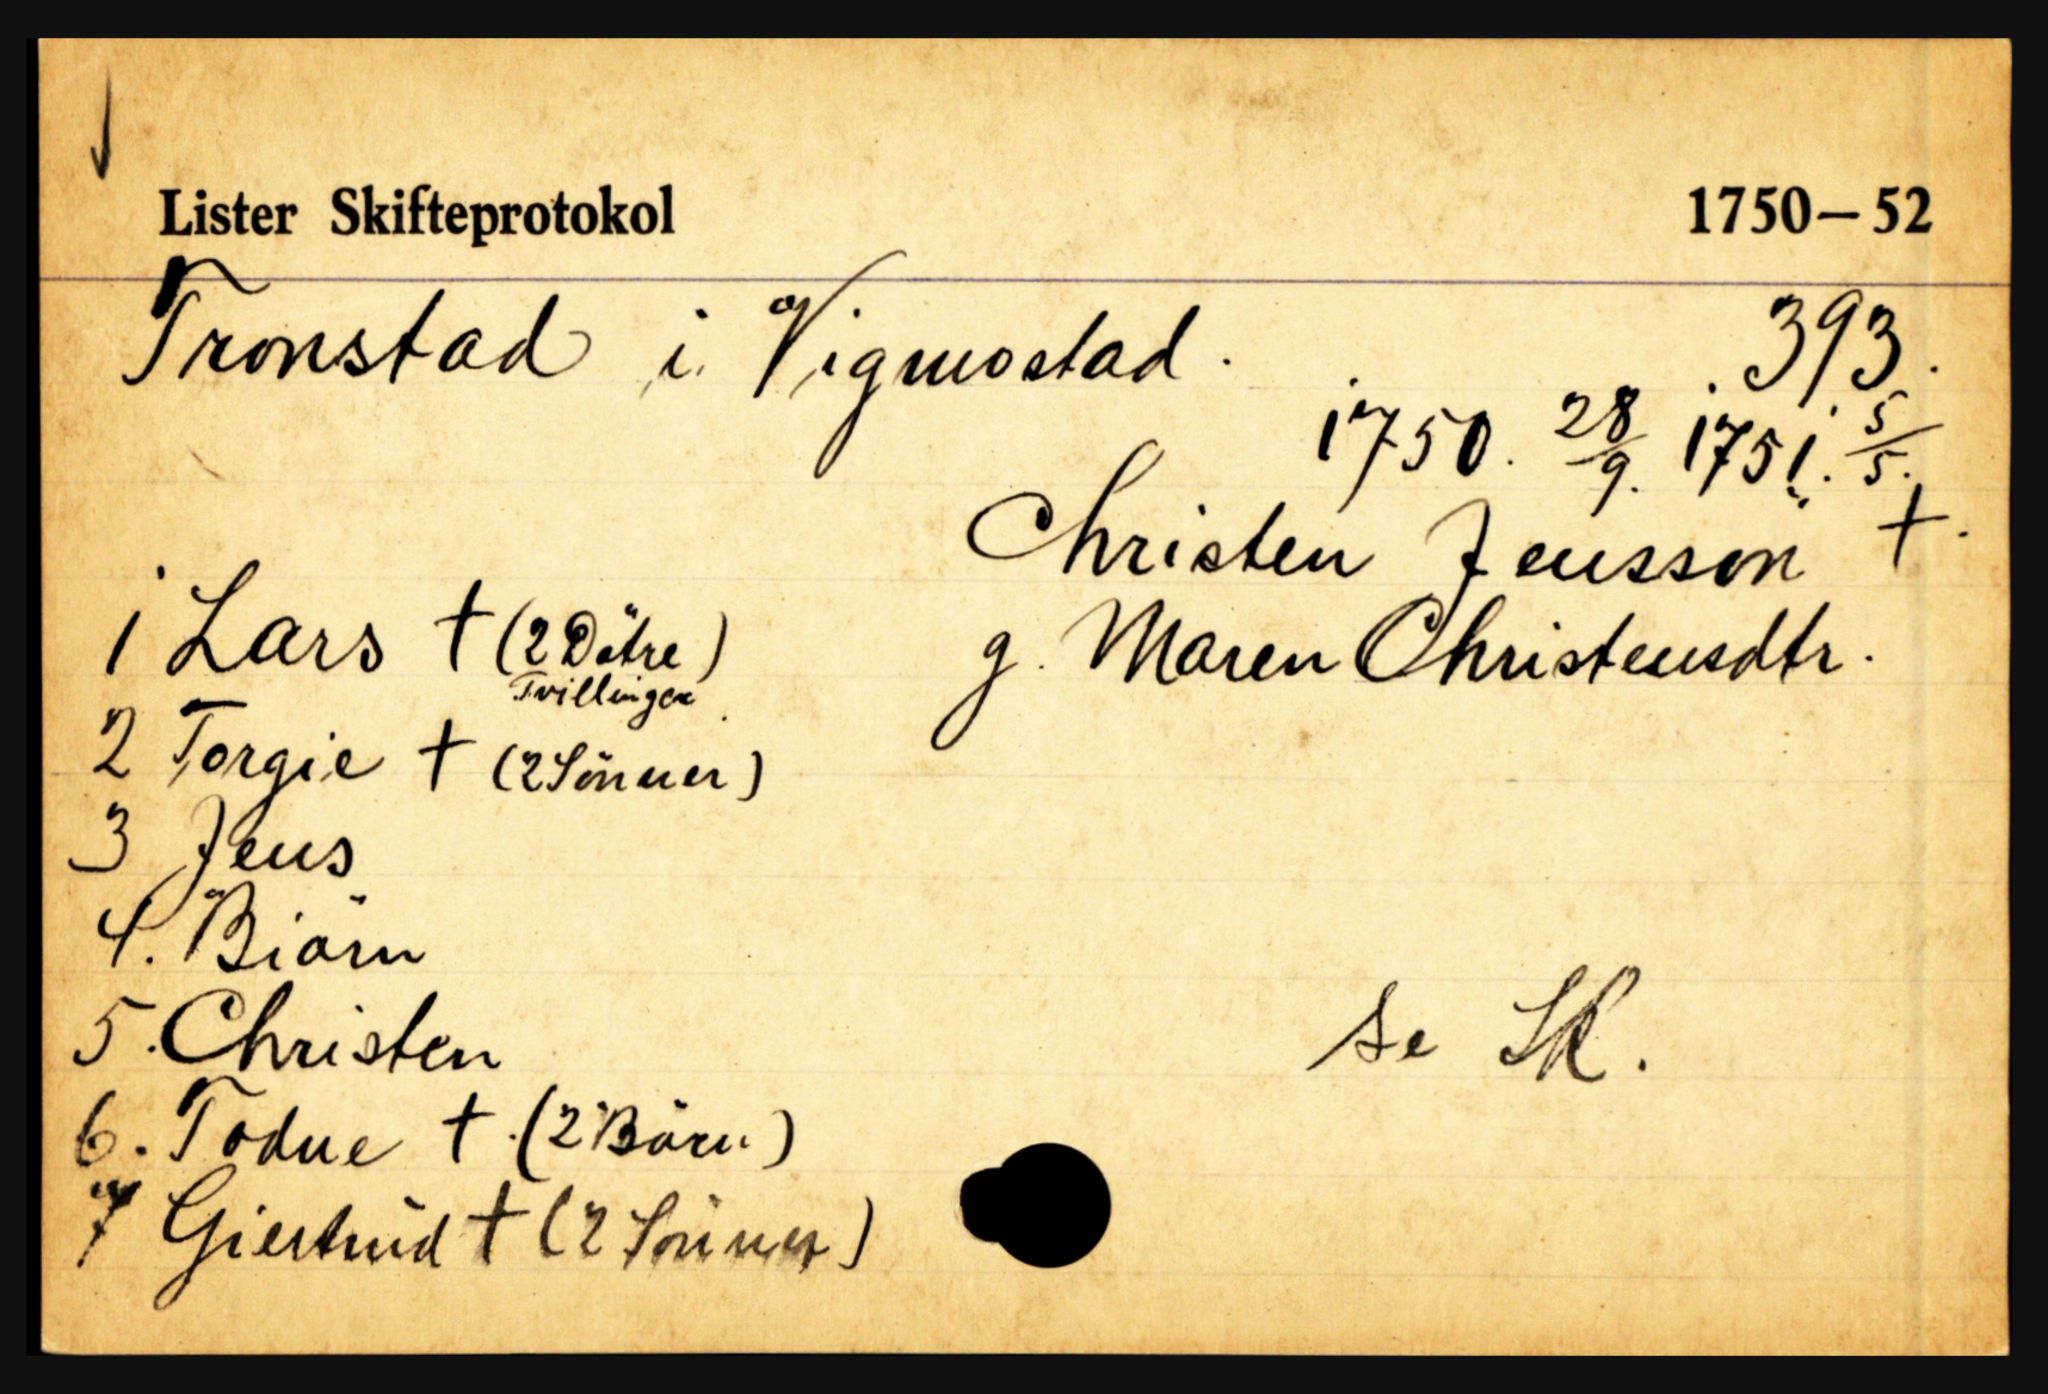 Lister Skifteprotokol 1750–52
Tronstad i Vigmostad. 393.
1750. 28/9. 1751. 5/5.
Christen Jensson †.
1 Lars † (2 Dötre) g. Maren Christensdtr.
Tvillinger
2 Torgie † (2 Sönner)
3 Jens
4. Biörn
5. Christen
se SK.
6. Todne † (2 Börn)
7 Giertrud † (2 Sönner)